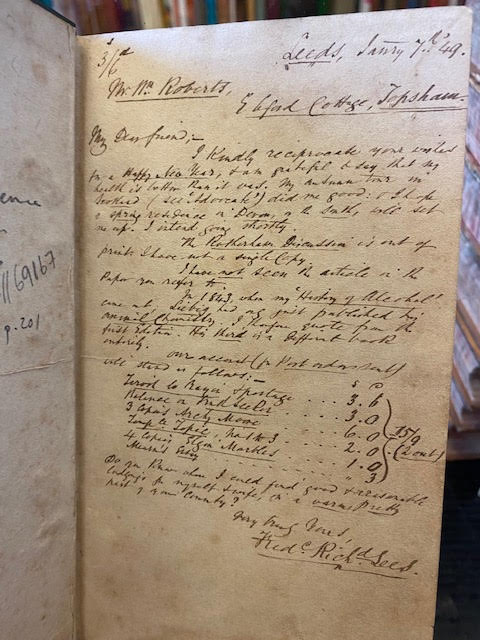 3/6d
Leeds, Janry 7th 49.
Mr Wm Roberts,
Ebford Cottage, Topsham.
My Dear friend,—
I Kindly reciprocate your wishes
for a Happy New Year, & am grateful to say that my
health is better than it was. My autumn tour in
Scotland (see 'Advocate') did me good: & I hope
a spring residence in Devon, or the South, will set
me up. I intend going shortly.
The Rotherham Discussion is out of
print: I have not a single Copy.
I have not seen the article in the
Paper you refer to.
In 1843, when my "History of Alcohol"
came out, Liebig had only just published his
Animal Chemistry. I therefore quote from the
first Edition. His third is a different book
entirely.
Our account (in Post orders ) 
will stand as follows:—
& Postage ... 3. 6
.. 3. 0
3 Copies ... 6. 0
Topic, ... 2. 0
4 Copies Elgin Marbles ... 1. 0
Essay ... " 3
15/9
Do you Know where I could find good & reasonable
lodgings for myself & wife, in a warm, pretty
part of your County?
Very truly Yours,
Fredc. Richd Lees.
1169167
p.201